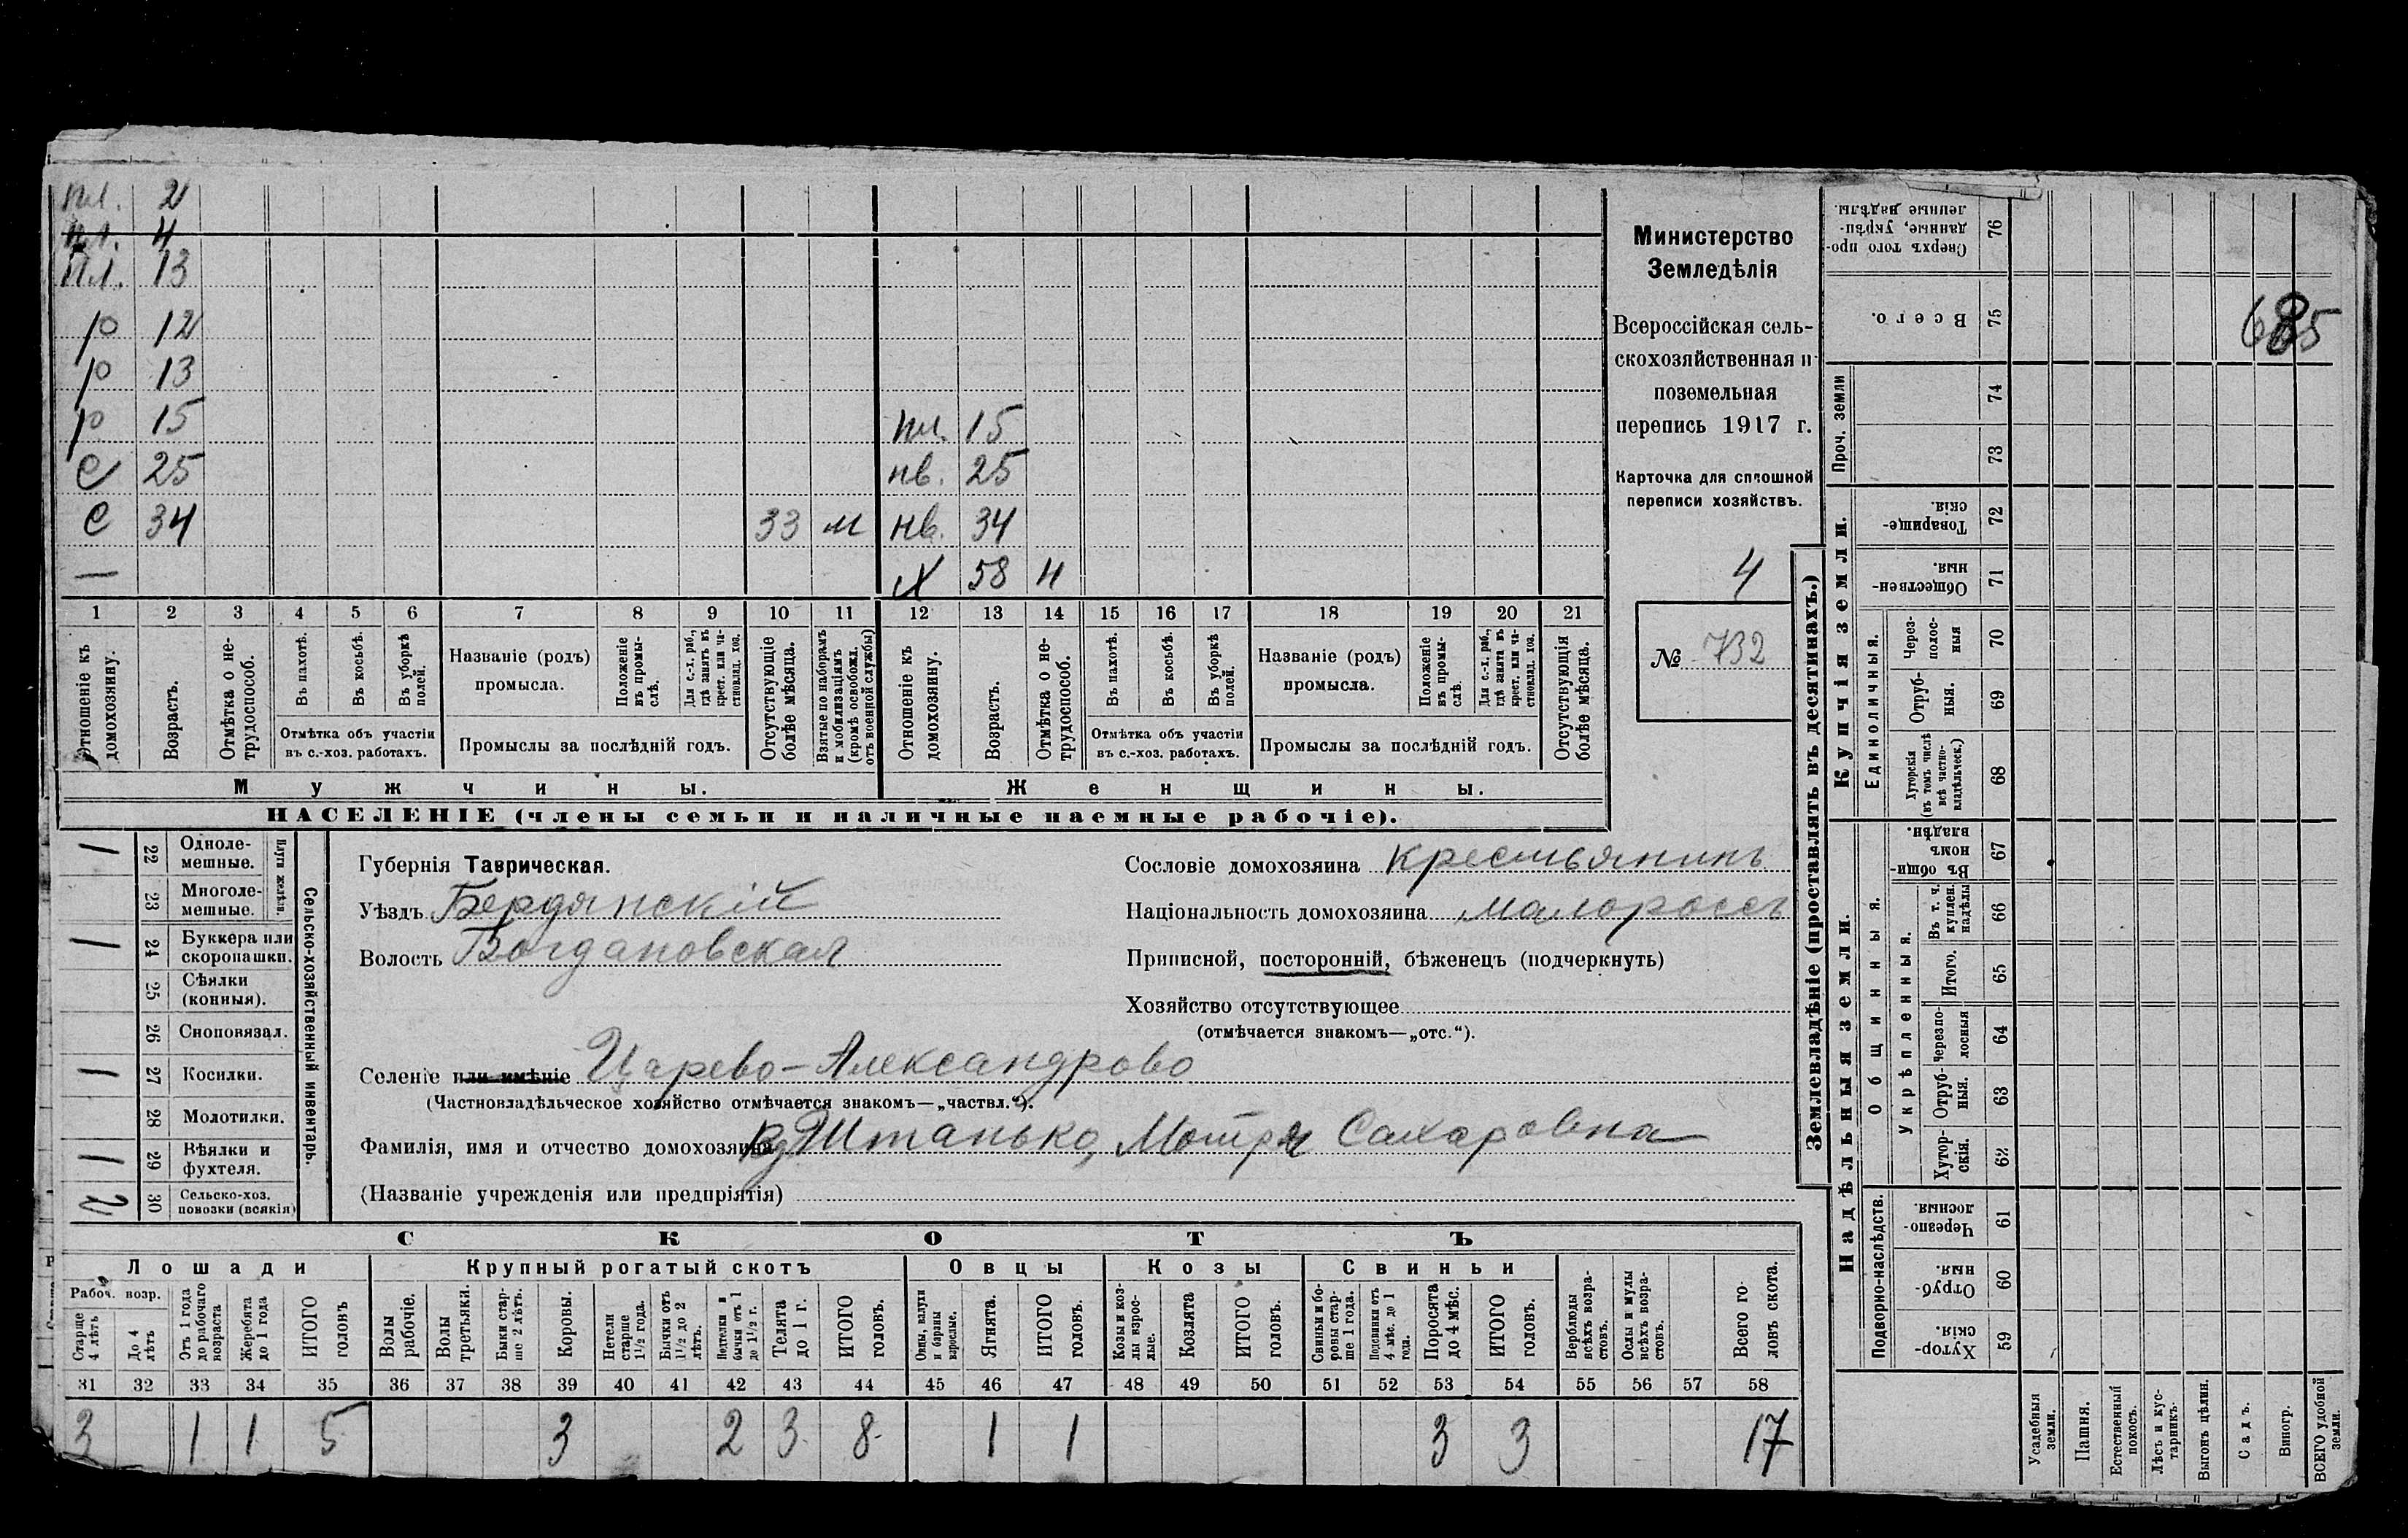 пл. 2
пл. 4
пл. 13
р 12
р 13
р 15 пл. 15
с 25 нв. 25
с 34 33 м нв. 34
— х 58 н
1 2 3 4 5 6 7 8 9 10 11 12 13 14 15 16 17 18 19 20 21
Отношеніе къ домохозяину.
Возрастъ.
Отмѣтка о нетрудоспособ.
Въ пахотѣ.
Въ косьбѣ.
Въ уборкѣ полей.
Отмѣтка объ участіи въ с.-хоз. работахъ.
Названіе (родъ) промысла.
Положеніе въ промыслѣ.
Для с.-х. раб., гдѣ занятъ въ крест. или частновлад. хоз.
Промыслы за послѣдній годъ.
Отсутствующіе болѣе мѣсяца.
Взятые по наборамъ и мобилизаціямъ (кромѣ освобожд. отъ военной службы)
Отношеніе къ домохозяину.
Возрастъ.
Отмѣтка о нетрудоспособ.
Въ пахотѣ.
Въ косьбѣ.
Въ уборкѣ полей.
Отмѣтка объ участіи въ с.-хоз. работахъ.
Названіе (родъ) промысла.
Положеніе въ промыслѣ.
Для с.-х. раб., гдѣ занята въ крест. или частновлад. хоз.
Промыслы за послѣдній годъ.
Отсутствующія болѣе мѣсяца.
Мужчины. Женщины.
НАСЕЛЕНІЕ (члены семьи и наличные наемные рабочіе).
Министерство
Земледѣлія
Всероссійская сель-
скохозяйственная и
поземельная
перепись 1917 г.
Карточка для сплошной
переписи хозяйствъ.
4
№ 732
Сельско-хозяйственный инвентарь.
Плуги желѣзн.
1 22 Одноле-мешные.
23 Многоле-мешные.
1 24 Буккера или скоропашки.
25 Сѣялки (конныя).
26 Сноповязал.
1 27 Косилки.
28 Молотилки.
1 29 Вѣялки и фухтеля.
2 30 Сельско-хоз. повозки (всякія)
Губернія Таврическая.
Уѣздъ Бердянскій
Волость Богдановская
Сословіе домохозяина крестьянинъ
Національность домохозяина малороссъ
Приписной, посторонній, бѣженецъ (подчеркнуть)
Хозяйство отсутствующее
(отмѣчается знакомъ—„отс.“).
Селеніе или имѣніе Царево-Александрово
(Частновладѣльческое хозяйство отмѣчается знакомъ—„частвл.“).
Фамилія, имя и отчество домохозяина Штанько, Мотря Сахаровна
(Названіе учрежденія или предпріятія)
СКОТЪ
Лошади Крупный рогатый скотъ Овцы Козы Свиньи
Рабоч. возр.
Старше 4 лѣтъ
До 4 лѣтъ
Отъ 1 года до рабочаго возраста
Жеребята до 1 года
ИТОГО головъ
Волы рабочіе.
Волы третьяки.
Быки старше 2 лѣтъ.
Коровы.
Нетели старше 1½ года.
Бычки отъ 1½ до 2 лѣтъ.
Подтелки и бычки отъ 1 до 1½ г.
Телята до 1 г.
ИТОГО головъ.
Овцы, валухи и бараны взрослые.
Ягнята.
ИТОГО головъ.
Козы и козлы взрослые.
Козлята
ИТОГО головъ.
Свиньи и боровы старше 1 года.
Подсвинки отъ 4 мѣс. до 1 года.
Поросята до 4 мѣс.
ИТОГО головъ.
Верблюды всѣхъ возрастовъ.
Ослы и мулы всѣхъ возрастовъ.
Всего головъ скота.
31 32 33 34 35 36 37 38 39 40 41 42 43 44 45 46 47 48 49 50 51 52 53 54 55 56 57 58
3 1 1 5 3 2 3 8 1 1 3 3 17
Землевладѣніе (проставлять въ десятинахъ.)
Купчія земли.
Надѣльныя земли.
Сверхъ того проданные, укрѣпленные надѣлы. 76
Всего. 75
685
Проч. земли 74
73
Товарищескія. 72
Общественныя. 71
Единоличныя.
Черезполосныя 70
Отрубныя. 69
Хуторскія (въ томъ числѣ всѣ частновладѣльческ.) 68
Общинныя.
Въ общинномъ владѣн. 67
Укрѣпленныя.
Въ т. ч. куплен. надѣлы 66
Итого. 65
Черезполосныя 64
Отрубныя. 63
Хуторскія. 62
Подворно-наслѣдств.
Черезполосныя. 61
Отрубныя. 60
Хуторскія. 59
Усадебныя земли.
Пашня.
Естественный покосъ.
Лѣсъ и кустарникъ.
Выгонъ цѣлин.
Садъ.
Виногр.
ВСЕГО удобной земли.